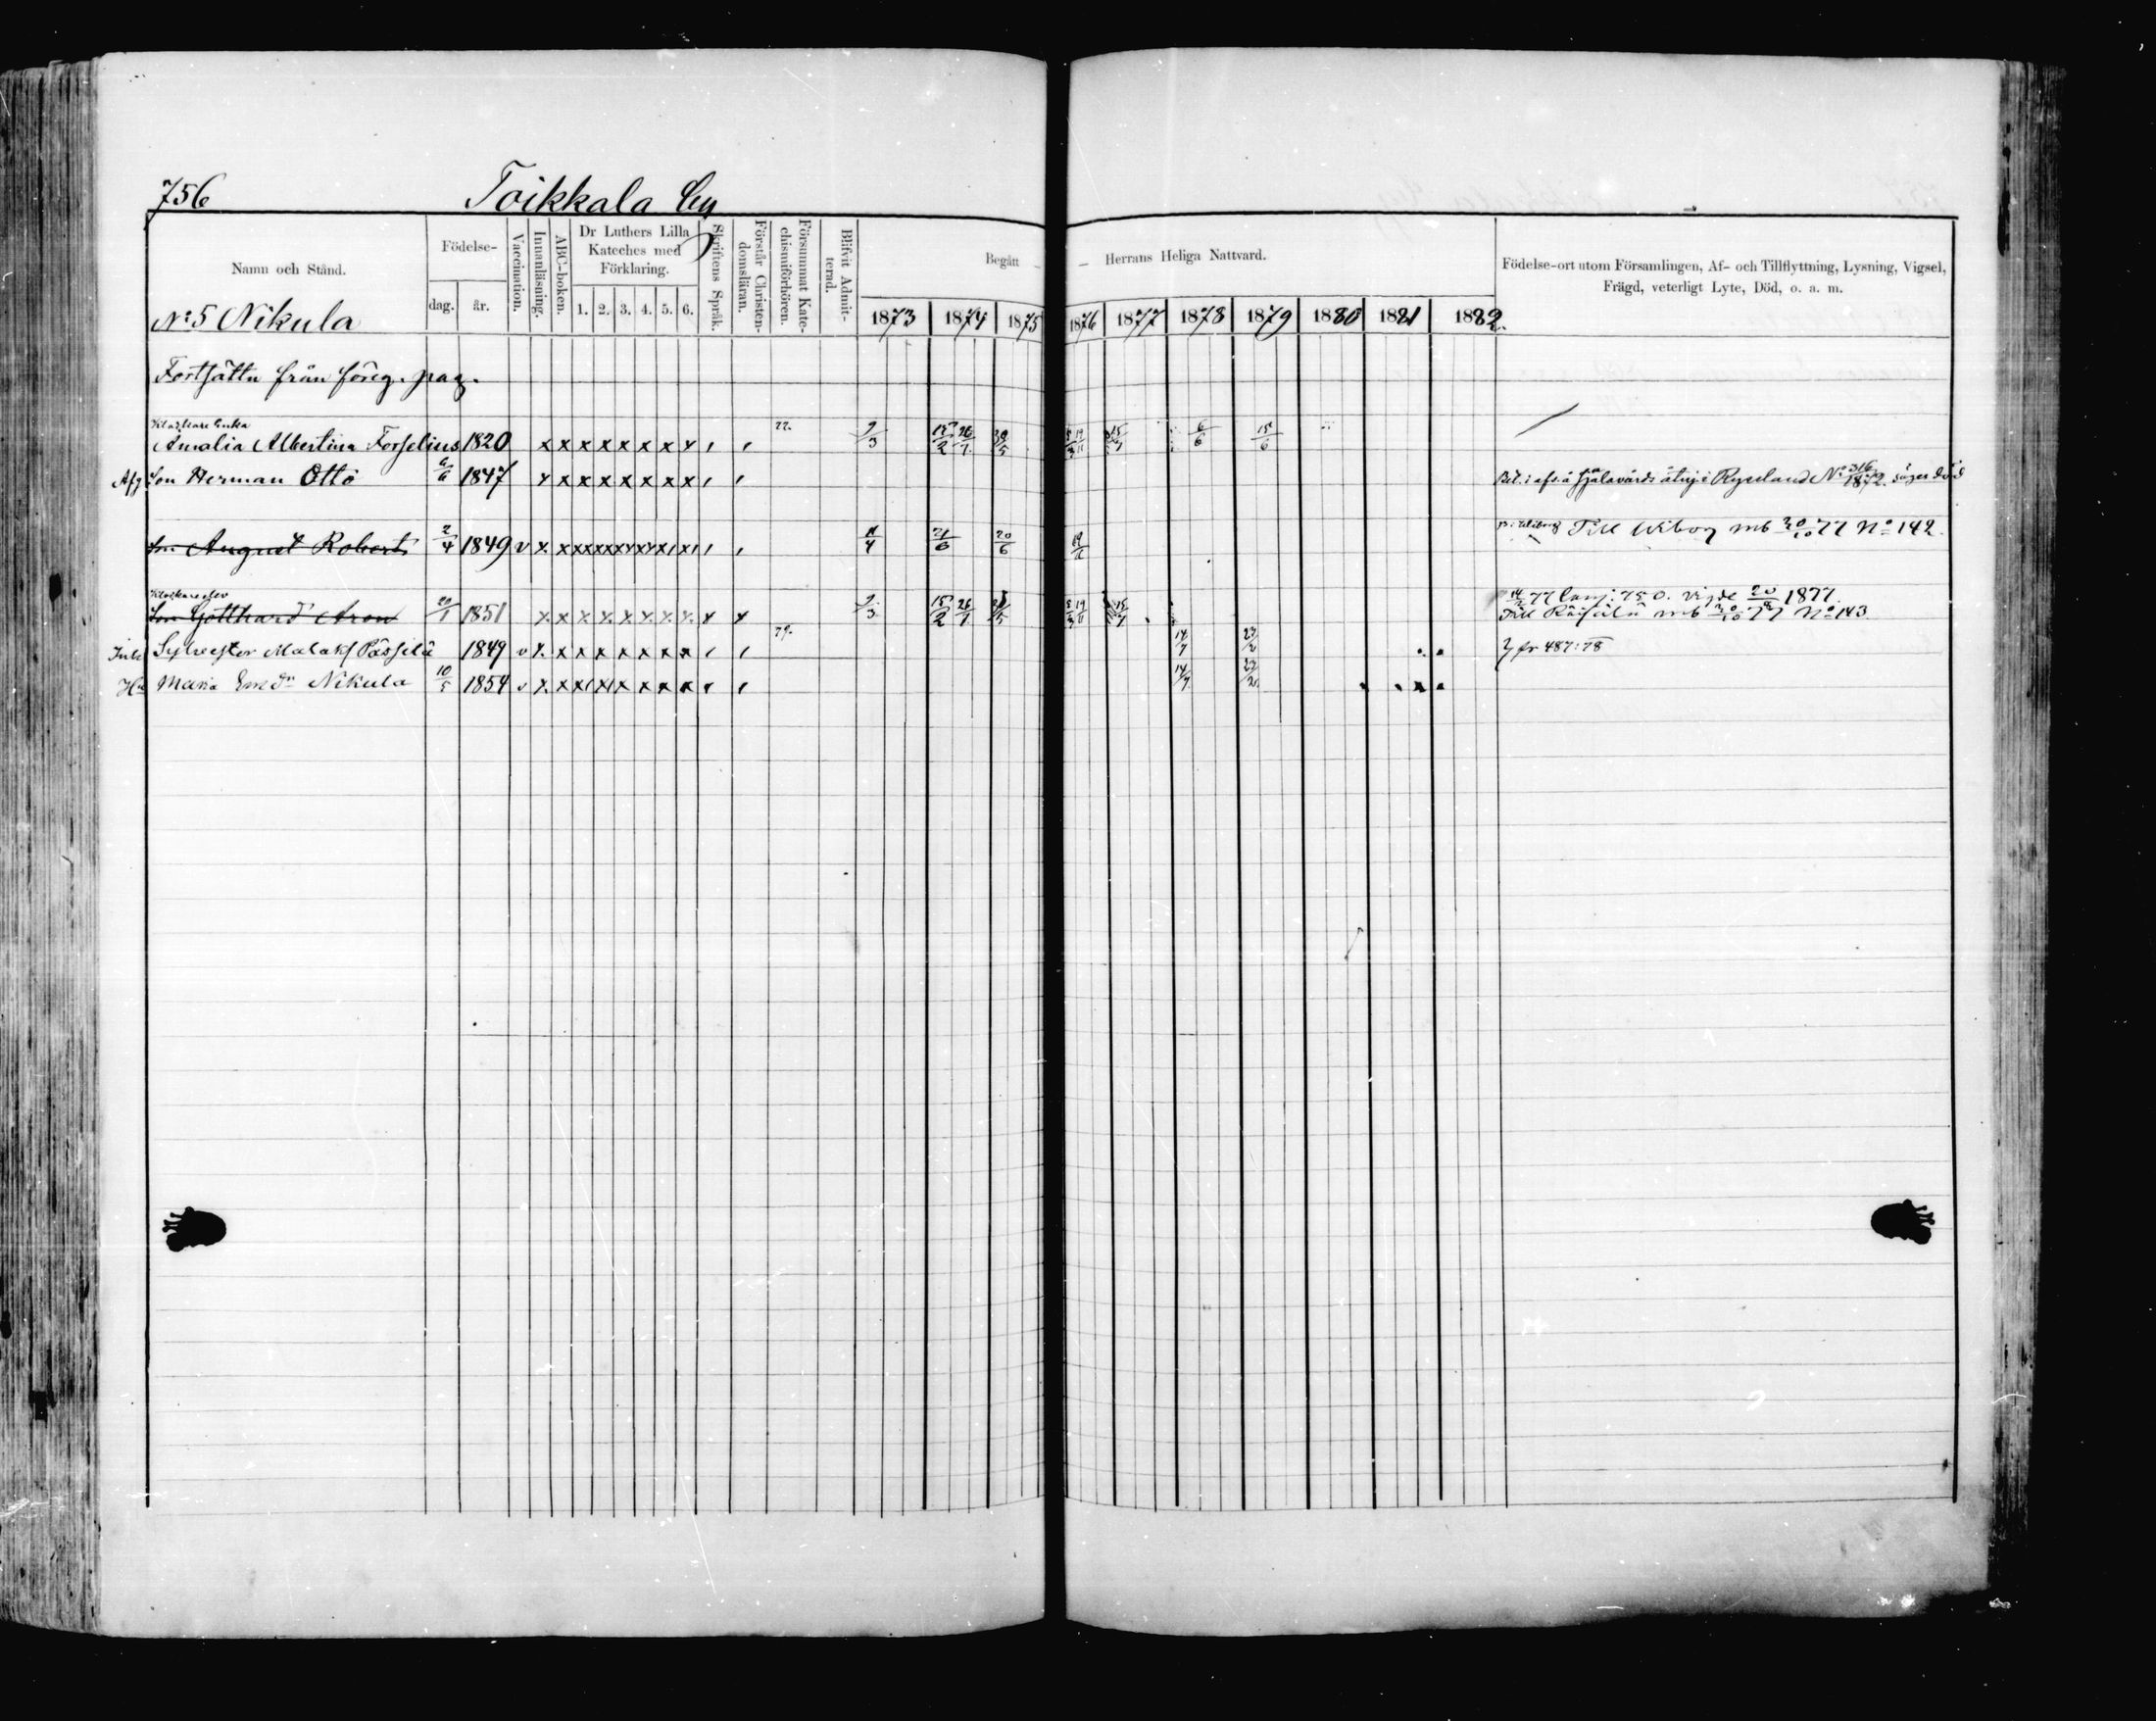 756 Toikkala by
Namn och Stånd.
Födelse-
dag. år.
Vaccination.
Innanläsning.
ABC-boken.
Dr Luthers Lilla
Kateches med
Förklaring.
1. 2. 3. 4. 5. 6.
Skriftens Språk.
Förstår Christen-
domsläran.
Försummat Kate-
chismiförhören.
Blifvit Admit-
terad.
Begått — — Herrans Heliga Nattvard.
1873 1874 1875 1876 1877 1878 1879 1880 1881 1882.
Födelse-ort utom Församlingen, Af- och Tillflyttning, Lysning, Vigsel,
Frägd, veterligt Lyte, Död, o. a. m.
No 5 Nikula
Fortsättn från föreg. pag.
Klockare Enka 77.
Amalia Albertina Forselius 1820 x x x x x x x x 9/3 15/2 26/7 15/7 6/6 15/6
Son Herman Otto 6/6 1847 x x x x x x x x i Ryssland No 316 1872. säges död
Son August Robert 2/4 1849 v x 4/4 21/6 20/6 19/11 Till Wiborg mb 30/10 77 No 142.
14/2 77 750. vigde 20/ 1877.
Son Gotthard Aron 20/1 1851 x x x x x x x x x x 9/3 15/2 26/7 15/7 Till Räisälä mb 30/10 77 No 143.
79.
Inh Sylvester Pässilä 1849 v x x x x x x x x 14/7 23/2 fr 487:78
Hu Maria Nikula 10/5 1854 v x x x x x x x x 14/7 23/2